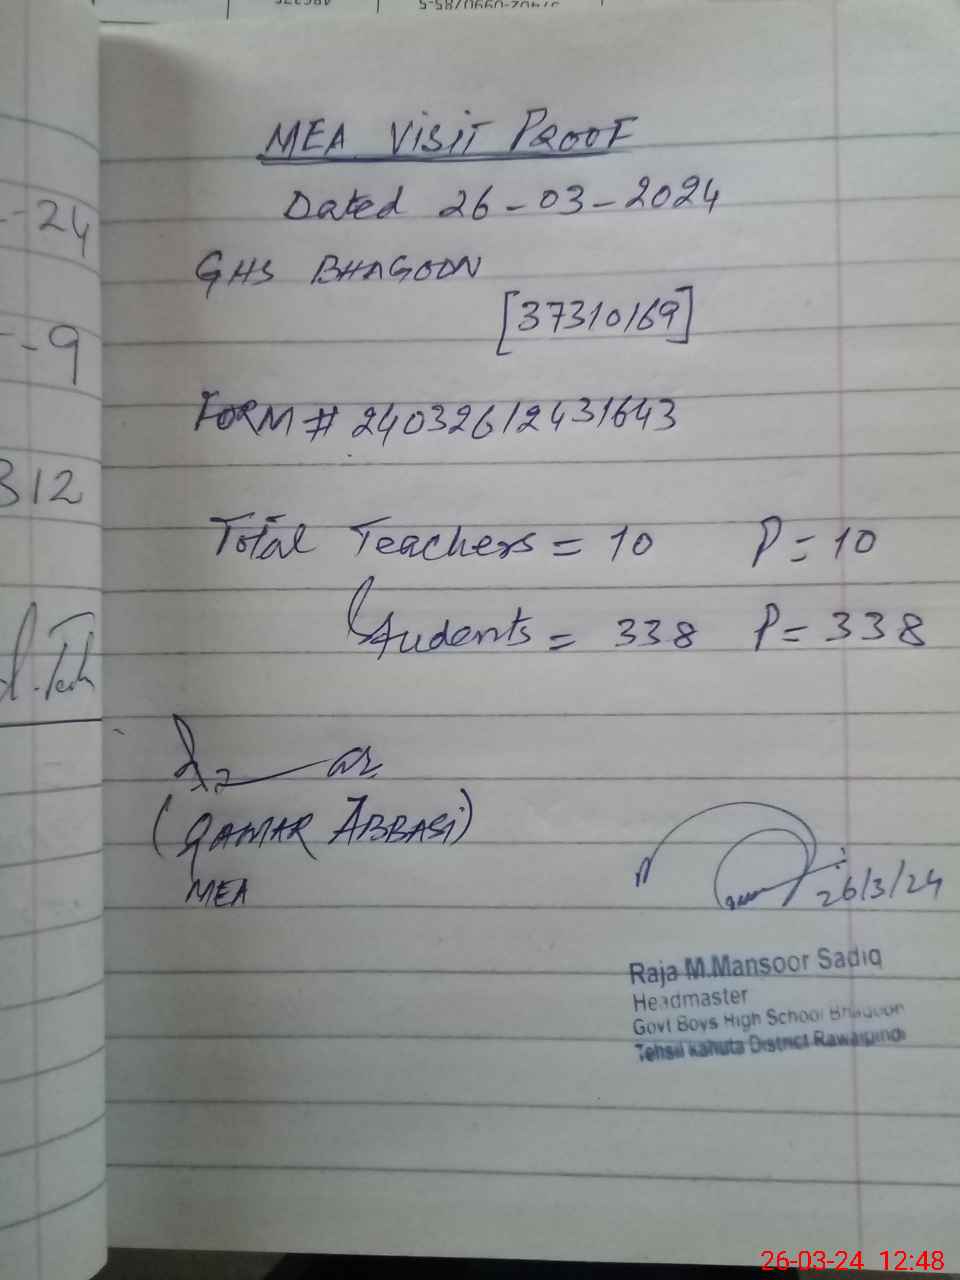 MEA VISIT PROOF
Dated 26-03-2024
GHS BHAGOON
[37310169]
FORM # 24032612431643
Total Teachers = 10 P = 10
Students = 338 P = 338
(QAMAR ABBASI)
MEA
26/3/24
Raja M.Mansoor Sadiq
Headmaster
Govt Boys High School Bhagoon
Tehsil Kahuta District Rawalpindi
--24
--9
312
26-03-24 12:48